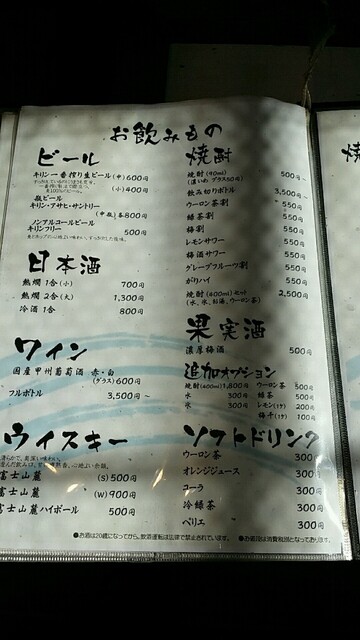 お飲みもの
ビール
キリン一番搾り生ビール (中) 600円
(小) 400円
瓶ビール
キリン・アサヒ・サントリー
(中瓶) 各800円
ノンアルコールビール
キリンフリー 500円
日本酒
熱燗 1合(小) 700円
熱燗 2合(大) 1,300円
冷酒 1合 800円
ワイン
国産甲州葡萄酒 赤・白
(グラス) 600円
フルボトル 3,500円~
ウイスキー
富士山麓 (S) 500円
富士山麓 (W) 900円
富士山麓ハイボール 500円
焼酎
焼酎(90ml) 500円~
(濃いめ プラス50円)
飲み切りボトル 3,500円~
ウーロン茶割 550円
緑茶割 550円
梅割 550円
レモンサワー 550円
梅酒サワー 550円
グレープフルーツ割 550円
がりハイ 550円
焼酎(400ml)セット 2,500円
(水、氷、お湯、ウーロン茶)
果実酒
濃厚梅酒 500円
追加オプション
焼酎(400ml) 1,800円 ウーロン茶 500円
水 300円 緑茶 500円
氷 300円 レモン(1ケ) 200円
梅干(1ケ) 100円
ソフトドリンク
ウーロン茶 300円
オレンジジュース 300円
コーラ 300円
冷緑茶 300円
ペリエ 300円
●お酒は20歳になってから。飲酒運転は法律で禁止されています。 ●お値段は消費税別となっております。
焼